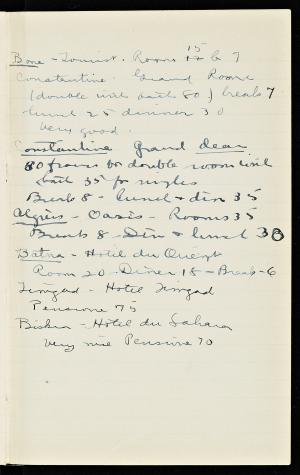 Bone - Tourist. Room 15 B 7
Constantine. Grand Room
(double with bath 80) breakf 7
lunch 25 dinner 30
very good.
Constantine Grand dear
80 francs for double room with
bath 35 for singles
Breakf 8 - lunch & din 35
Algiers - Oasis - Rooms 35
Breakf 8 Din & lunch 30
Batna - Hotel du
Room 20 Diner 18 - Break - 6
Timgad - Hotel Timgad
Pensione 75
Biskra - Hôtel du Sahara
very nice Pensione 70